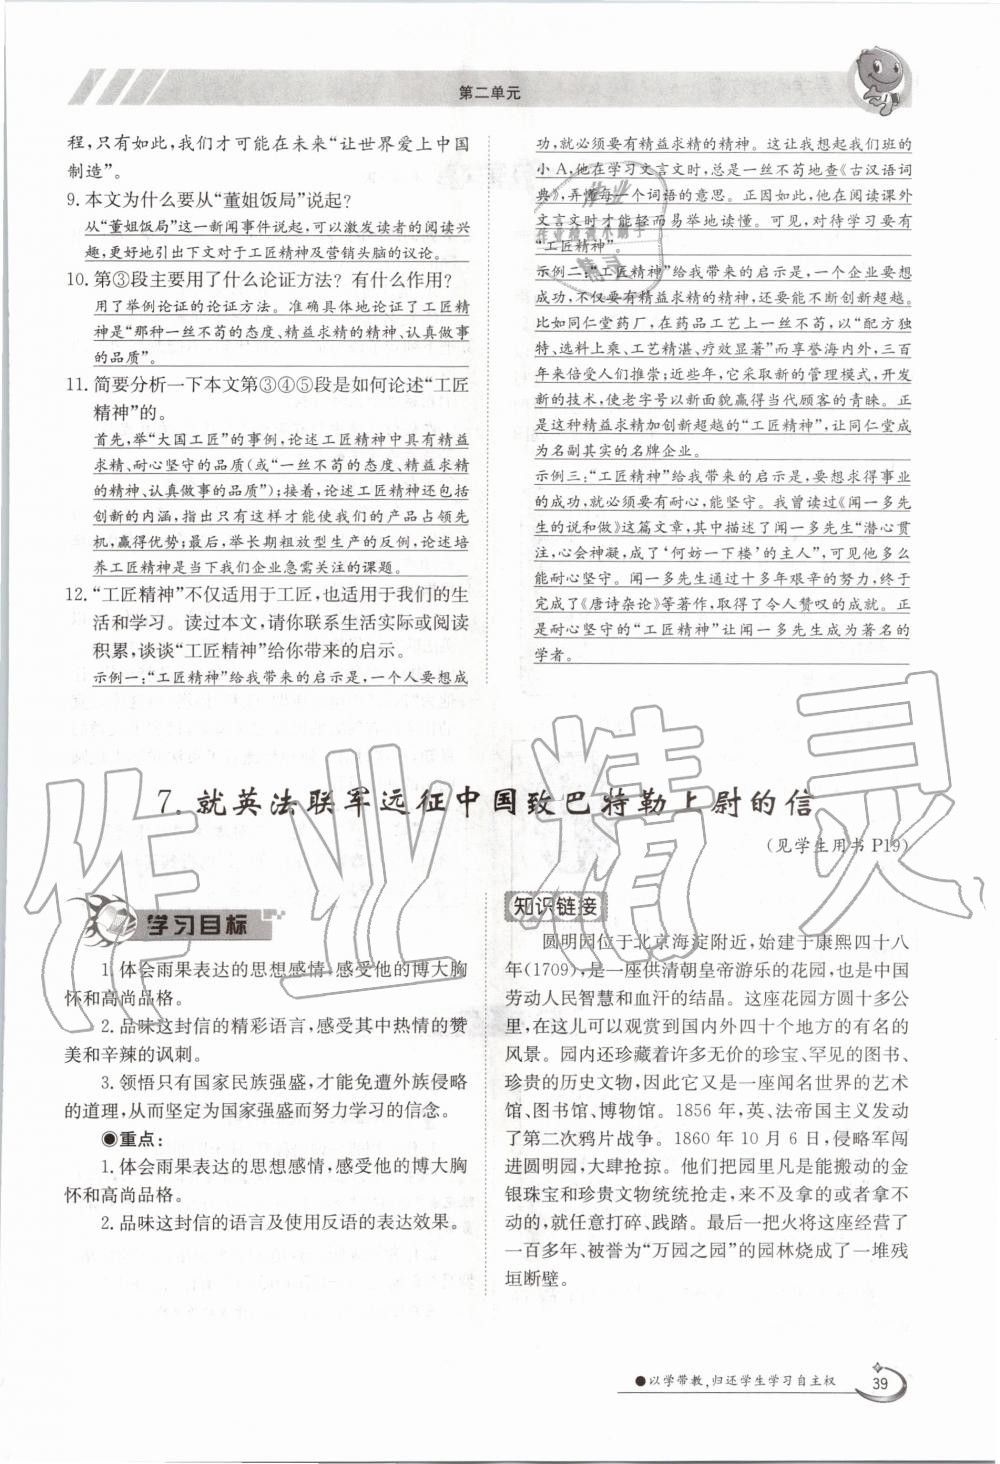 第二单元
程,只有如此,我们才可能在未来“让世界爱上中国
制造”。
9. 本文为什么要从“董姐饭局”说起?
从“董姐饭局”这一新闻事件说起,可以激发读者的阅读兴
趣,更好地引出下文对于工匠精神及营销头脑的议论。
10. 第③段主要用了什么论证方法? 有什么作用?
用了举例论证的论证方法。准确具体地论证了工匠精
神是“那种一丝不苟的态度、精益求精的精神、认真做事
的品质”。
11. 简要分析一下本文第③④⑤段是如何论述“工匠
精神”的。
首先,举“大国工匠”的事例,论述工匠精神中具有精益
求精、耐心坚守的品质(或“一丝不苟的态度、精益求精
的精神、认真做事的品质”);接着,论述工匠精神还包括
创新的内涵,指出只有这样才能使我们的产品占领先
机,赢得优势;最后,举长期粗放型生产的反例,论述培
养工匠精神是当下我们企业急需关注的课题。
12. “工匠精神”不仅适用于工匠,也适用于我们的生
活和学习。读过本文,请你联系生活实际或阅读
积累,谈谈“工匠精神”给你带来的启示。
示例一:“工匠精神”给我带来的启示是,一个人要想成
功,就必须要有精益求精的精神。这让我想起我们班的
小A,他在学习文言文时,总是一丝不苟地查《古汉语词
典》,弄懂每一个词语的意思。正因如此,他在阅读课外
文言文时才能轻而易举地读懂。可见,对待学习要有
“工匠精神”。
示例二:“工匠精神”给我带来的启示是,一个企业要想
成功,不仅要有精益求精的精神,还要能不断创新超越。
比如同仁堂药厂,在药品工艺上一丝不苟,以“配方独
特、选料上乘、工艺精湛、疗效显著”而享誉海内外,三百
年来倍受人们推崇;近些年,它采取新的管理模式,开发
新的技术,使老字号以新面貌赢得当代顾客的青睐。正
是这种精益求精加创新超越的“工匠精神”,让同仁堂成
为名副其实的名牌企业。
示例三:“工匠精神”给我带来的启示是,要想求得事业
的成功,就必须要有耐心,能坚守。我曾读过《闻一多先
生的说和做》这篇文章,其中描述了闻一多先生“潜心贯
注,心会神凝,成了‘何妨一下楼’的主人”,可见他多么
能耐心坚守。闻一多先生通过十多年艰辛的努力,终于
完成了《唐诗杂论》等著作,取得了令人赞叹的成就。正
是耐心坚守的“工匠精神”让闻一多先生成为著名的
学者。
7. 就英法联军远征中国致巴特勒上尉的信
(见学生用书 P19)
学习目标
1. 体会雨果表达的思想感情,感受他的博大胸
怀和高尚品格。
2. 品味这封信的精彩语言,感受其中热情的赞
美和辛辣的讽刺。
3. 领悟只有国家民族强盛,才能免遭外族侵略
的道理,从而坚定为国家强盛而努力学习的信念。
●重点:
1. 体会雨果表达的思想感情,感受他的博大胸
怀和高尚品格。
2. 品味这封信的语言及使用反语的表达效果。
知识链接
圆明园位于北京海淀附近,始建于康熙四十八
年(1709),是一座供清朝皇帝游乐的花园,也是中国
劳动人民智慧和血汗的结晶。这座花园方圆十多公
里,在这儿可以观赏到国内外四十个地方的有名的
风景。园内还珍藏着许多无价的珍宝、罕见的图书、
珍贵的历史文物,因此它又是一座闻名世界的艺术
馆、图书馆、博物馆。1856 年,英、法帝国主义发动
了第二次鸦片战争。1860 年 10 月 6 日,侵略军闯
进圆明园,大肆抢掠。他们把园里凡是能搬动的金
银珠宝和珍贵文物统统抢走,来不及拿的或者拿不
动的,就任意打碎、践踏。最后一把火将这座经营了
一百多年、被誉为“万园之园”的园林烧成了一堆残
垣断壁。
●以学带教,归还学生学习自主权
39
作业精灵